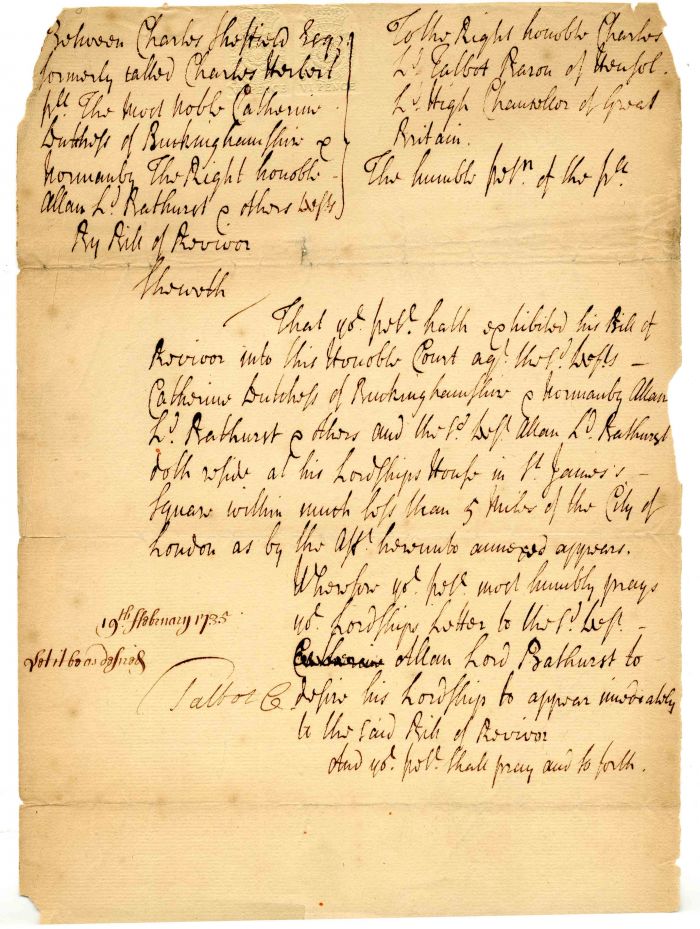 Between Charles Sheffield Esqr
formerly called Charles Herbert
plt. The most noble Catherine
Dutchess of Buckinghamshire &
Normanby The Right honoble
Allan Ld. Bathurst & others Defts
By Bill of Revivor
To the Right honoble Charles
Ld. Talbot Baron of Hensol.
Ld. High Chancellor of Great
Britain.
The humble petn. of the plt.
Sheweth
That yor. petr. hath exhibited his Bill of
Revivor into this Honoble Court agt. the sd. Defts
Catherine Dutchess of Buckinghamshire & Normanby Allan
Ld. Bathurst & others and the sd. Deft. Allan Ld. Bathurst
doth reside at his Lordships House in St. James's
Square within much less than 5 Miles of the City of
London as by the Afft. hereunto annexed appears.
Wherefore yor. petr. most humbly prays
yor. Lordships Letter to the sd. Deft.
Allan Lord Bathurst to
desire his Lordship to appear imediately
to the said Bill of Revivor
And yor. petr. shall pray and so forth.
19th ffebruary 1735
Let it be as desired
Talbot C